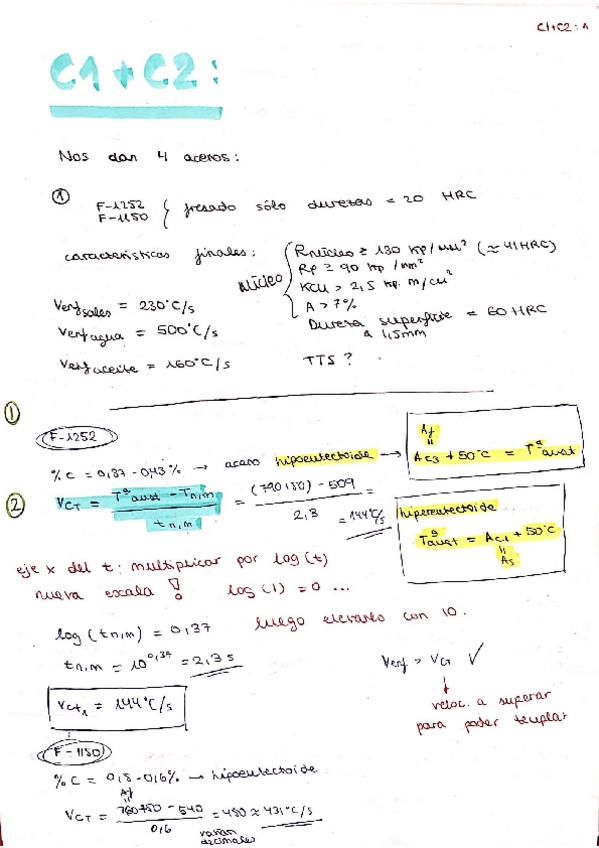 C1+C2: 1
C1+C2:
Nos dan 4 aceros:
① F-1252
F-1150 } fresado sólo durezas = 20 HRC
características finales:
Núcleo { Rnúcleo ≥ 130 kp/mm² (≈ 41HRC)
Rp ≥ 90 kp/mm²
KCU > 2,5 kp.m/cm²
A > 7%
Dureza superficie = 60 HRC
a 1,5mm
Venf sales = 230°C/s
Venf agua = 500°C/s
Venf aceite = 160°C/s
TTS?
①
F-1252
% C = 0,37-0,43% → acero hipoeutectoide →
Af
=
Ac3 + 50°C = Tª aust
②
VCT = Tª aust - Tn,m / tn,m = (790+50) - 509 / 2,3 = 144°C/s
hipereutectoide
Tª aust = Ac1 + 50°C
=
As
eje x del t: multiplicar por log(t)
nueva escala! log(1) = 0 ...
log(tn,m) = 0,37 luego elevarlo con 10.
tn,m = 10^0,37 = 2,3 s
Venf > VCT ✓
↓
veloc. a superar
para poder templar
VCT1 = 144°C/s
F-1150
% C = 0,5-0,6% → hipoeutectoide
Af
=
VCT = 760+50 - 540 / 0,6 = 450 ≈ 431°C/s
varían
decimales